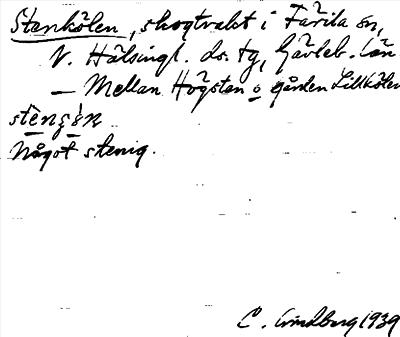 Stenkölen, skogtrakt i Färila sn,
V. Hälsingl. ds. tg, Gävleb. län
— Mellan Högsten o gården Lillkölen
Något stenig.
C. Lindberg 1939